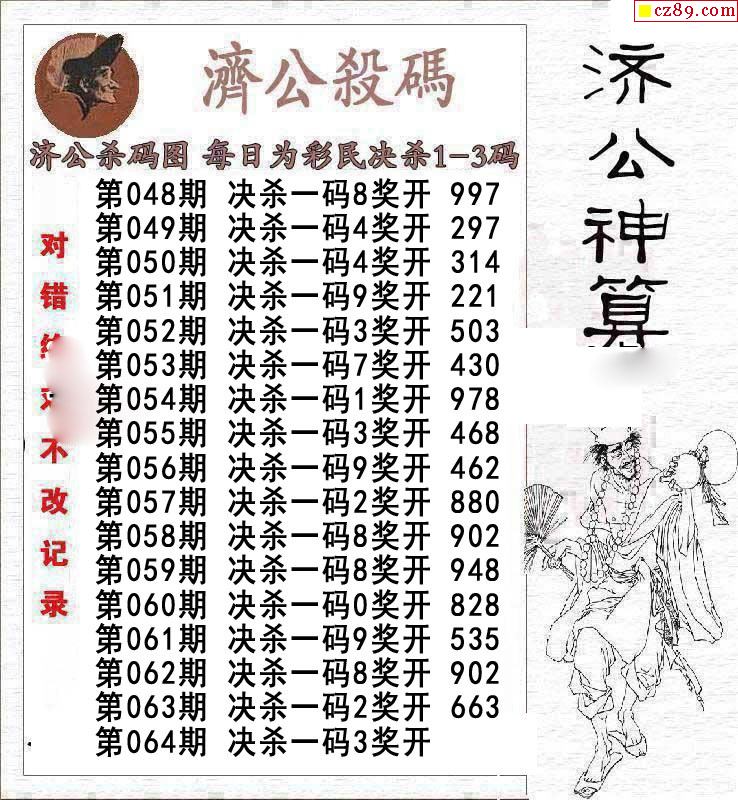 cz89.com
濟公殺碼
济公杀码图 每日为彩民决杀1-3码
第048期 决杀一码8奖开 997
第049期 决杀一码4奖开 297
第050期 决杀一码4奖开 314
第051期 决杀一码9奖开 221
第052期 决杀一码3奖开 503
第053期 决杀一码7奖开 430
第054期 决杀一码1奖开 978
第055期 决杀一码3奖开 468
第056期 决杀一码9奖开 462
第057期 决杀一码2奖开 880
第058期 决杀一码8奖开 902
第059期 决杀一码8奖开 948
第060期 决杀一码0奖开 828
第061期 决杀一码9奖开 535
第062期 决杀一码8奖开 902
第063期 决杀一码2奖开 663
第064期 决杀一码3奖开
对错不改记录
济公神算